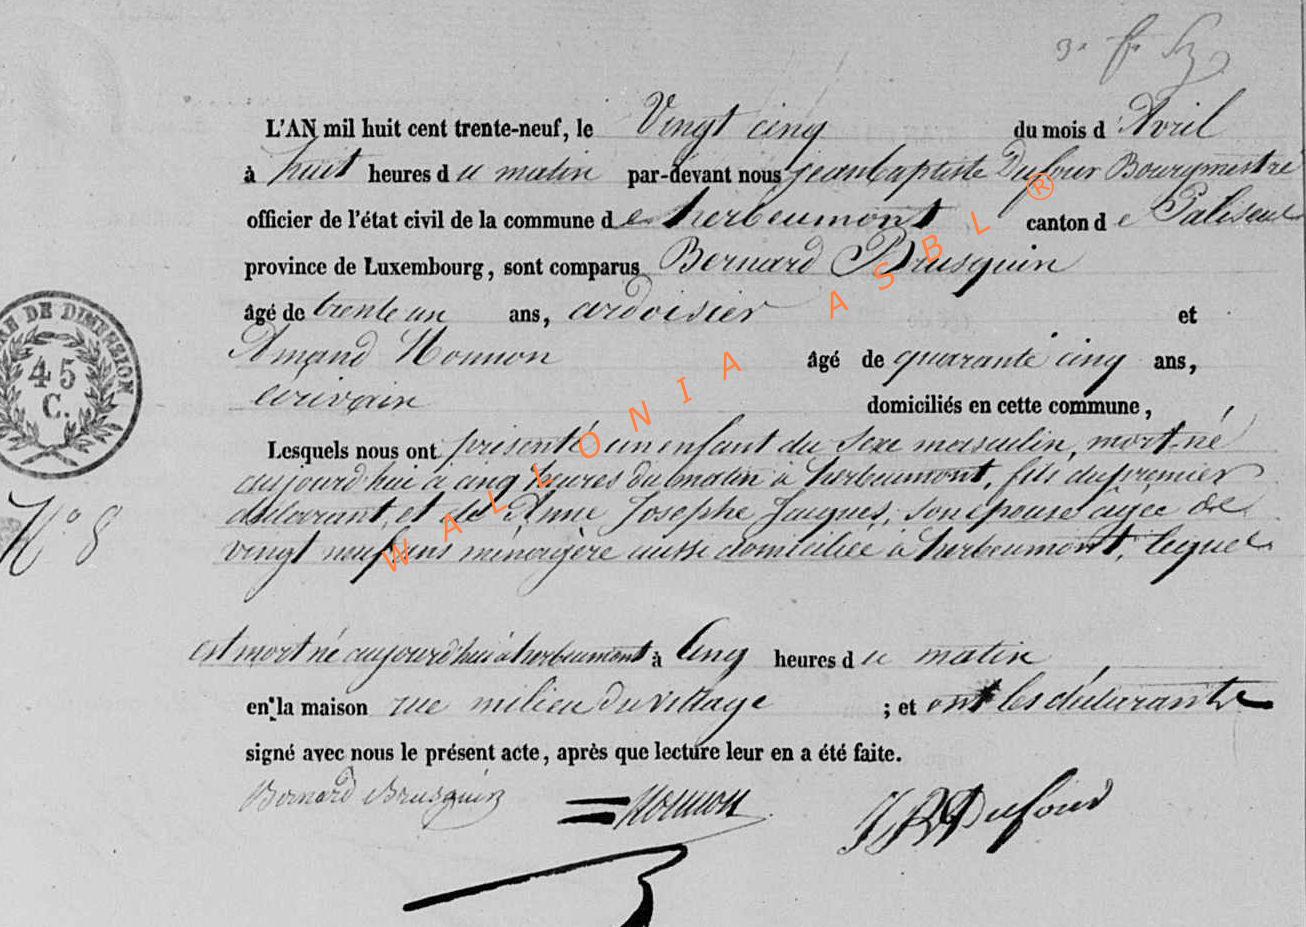 3e f
L'AN mil huit cent trente-neuf, le Vingt cinq du mois d'Avril
à huit heures du matin par-devant nous jean baptiste Dufour Bourgmestre
officier de l'état civil de la commune de herbeumont canton de Paliseul
province de Luxembourg, sont comparus Bernard Brusquin
âgé de trente un ans, ardoisier et
Amand Honnon âgé de quarante cinq ans,
écrivain domiciliés en cette commune,
Lesquels nous ont présenté un enfant du sexe masculin, mort né
aujourd'hui à cinq heures du matin à herbeumont, fils du premier
déclarant, et de Anne Josephe Jacques, son épouse âgée de
vingt neuf ans ménagère aussi domiciliée à herbeumont, lequel
est mort né aujourd'hui à herbeumont à Cinq heures du matin
en la maison rue milieu du village ; et ont les déclarants
signé avec nous le présent acte, après que lecture leur en a été faite.
Bernard Brusquin Honnon JB Dufour
N° 8
DE DIMENSION
45
C.
WALLONIA ASBL ®